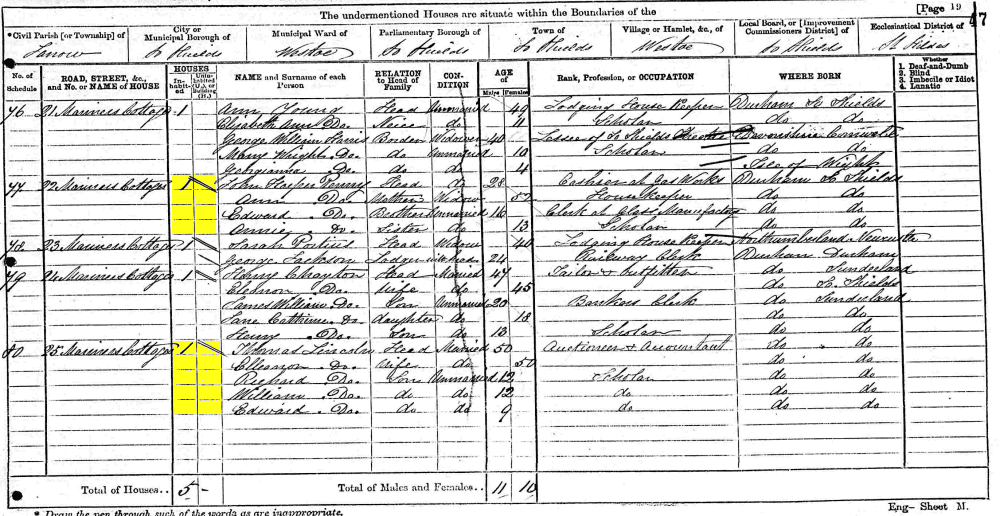 The undermentioned Houses are situate within the Boundaries of the [Page 19
47
* Civil Parish [or Township] of City or Municipal Borough of Municipal Ward of Parliamentary Borough of Town of Village or Hamlet, &c., of Local Board, or [Improvement Commissioners District] of Ecclesiastical District of
Jarrow So Shields Westoe So Shields So Shields Westoe So Shields St Hildas
No. of Schedule ROAD, STREET, &c., and No. or NAME of HOUSE HOUSES Inhabited Uninhabited (U.), or Building (B.) NAME and Surname of each Person RELATION to Head of Family CONDITION AGE of Males Females Rank, Profession, or OCCUPATION WHERE BORN Whether 1. Deaf-and-Dumb 2. Blind 3. Imbecile or Idiot 4. Lunatic
76 21 Mariners Cottages 1 Ann Young Head Unmarried 49 Lodging House Keeper Durham So Shields
Elizabeth Ann Do. Neice do 11 Scholar do do
George William Boarder Widower 40 Lessee of So Shields Theatre Devonshire Cornwall
Mary Do. do Unmarried 10 Scholar do do
Georgianna Do. do do 4 Isle of Wight
77 22 Mariners Cottages 1 John Penny Head do 28 Cashier at Gas Works Durham So Shields
Ann Do. Mother Widow 52 House Keeper do do
Edward . Do. Brother Unmarried 16 Clerk at Glass Manufactory do do
Annie . Do. Sister do 13 Scholar do do
78 23 Mariners Cottages 1 Sarah Head Widow 40 Lodging House Keeper Northumberland Newcastle
George Jackson Lodger Unmarried 24 Railway Clerk Durham Durham
79 24 Mariners Cottages 1 Henry Clayton Head Married 47 Tailor & Outfitter do Sunderland
Eleanor Do. Wife do 45 do So Shields
James William Do. Son Unmarried 20 Bankers Clerk do Sunderland
Jane Catherine Do. daughter do 18 do do
Henry . Do. Son do 13 Scholar do do
80 25 Mariners Cottages 1 Thomas Lincoln Head Married 50 Auctioneer & Accountant do do
Elleanor . Do. Wife do 50 do do
Richard Do. Son Unmarried 12 Scholar do do
William . Do. do do 12 do do do
Edward . Do. do do 9 do do do
Total of Houses.. 5 - Total of Males and Females.. 11 10
* Draw the pen through such of the words as are inappropriate. Eng- Sheet M.